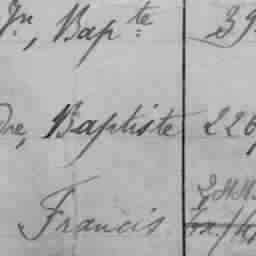 Jn, Bapte 39
dre, Baptiste 226
Francis